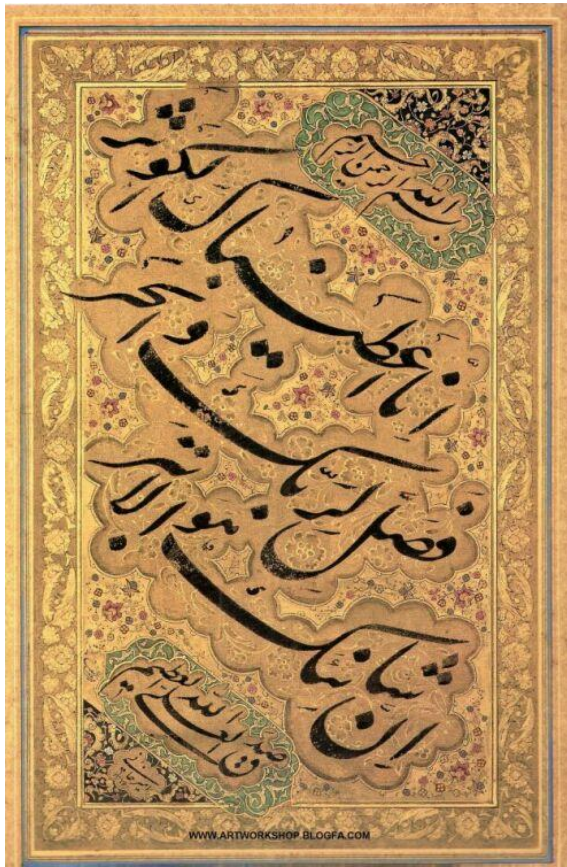 بسم الله الرحمن الرحیم
انّا اعطیناک الکوثر
فصلّ لربّک و انحر
انّ شانئک هو الابتر
صدق الله العلی العظیم
WWW.ARTWORKSHOP.BLOGFA.COM